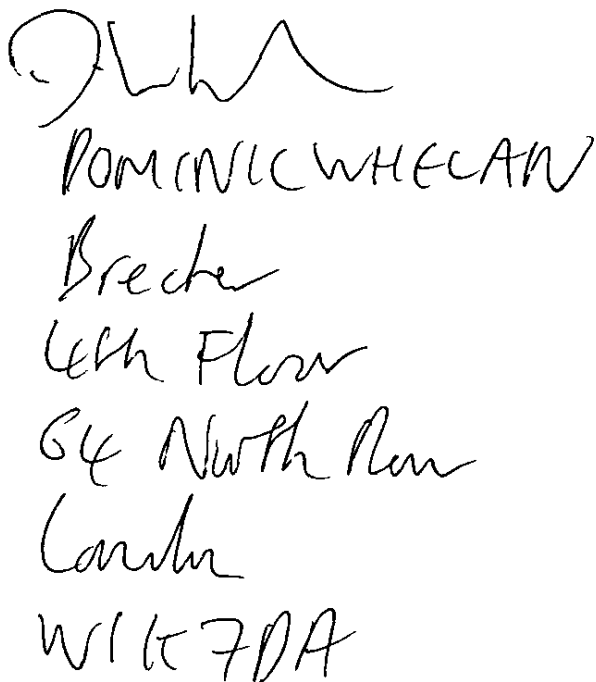 DOMINIC WHELAN
Brecher
4th Floor
64 North Row
London
W1K 7DA